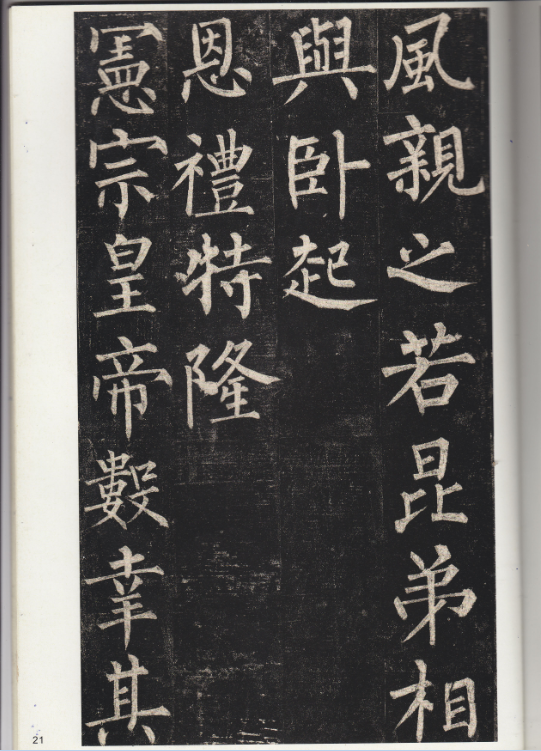 風親之若昆弟相
與卧起
恩禮特隆
憲宗皇帝數幸其
21